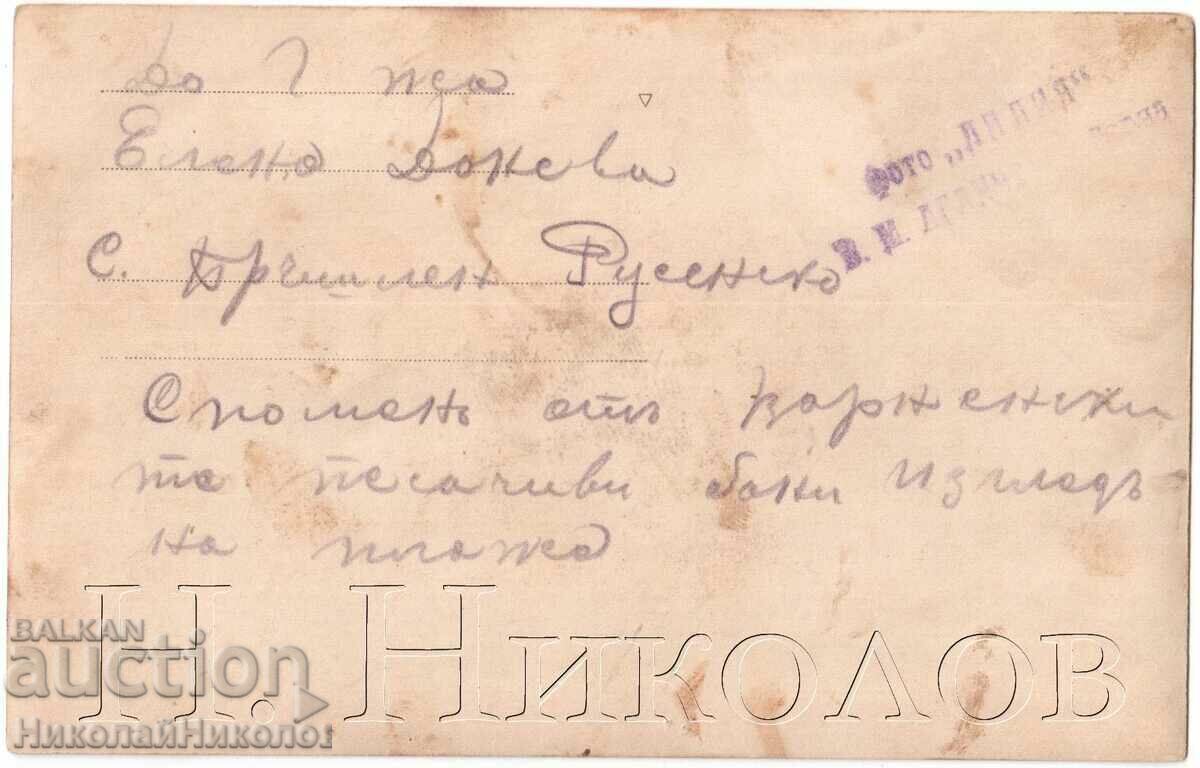 До Г жа
Елена Донева
с. Бръшлен Русенско
Споменъ отъ варненски
те песачиви бани изгледъ
на плажа
Фото „ЛИЛИЯ“
В. И.
Н. Николов
BALKAN
auction
НиколайНиколов